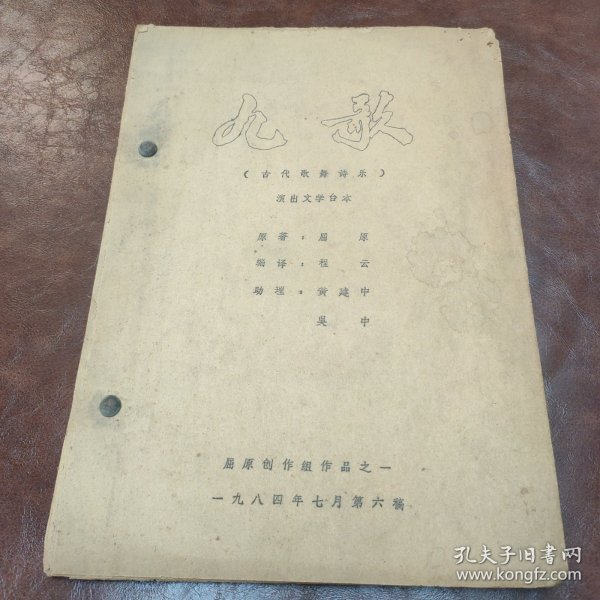 九歌
（古代歌舞诗乐）
演出文学台本
原著：屈原
编译：程云
助理：黄建中
吴中
屈原创作组作品之一
一九八四年七月第六稿
孔夫子旧书网
www.kongfz.com